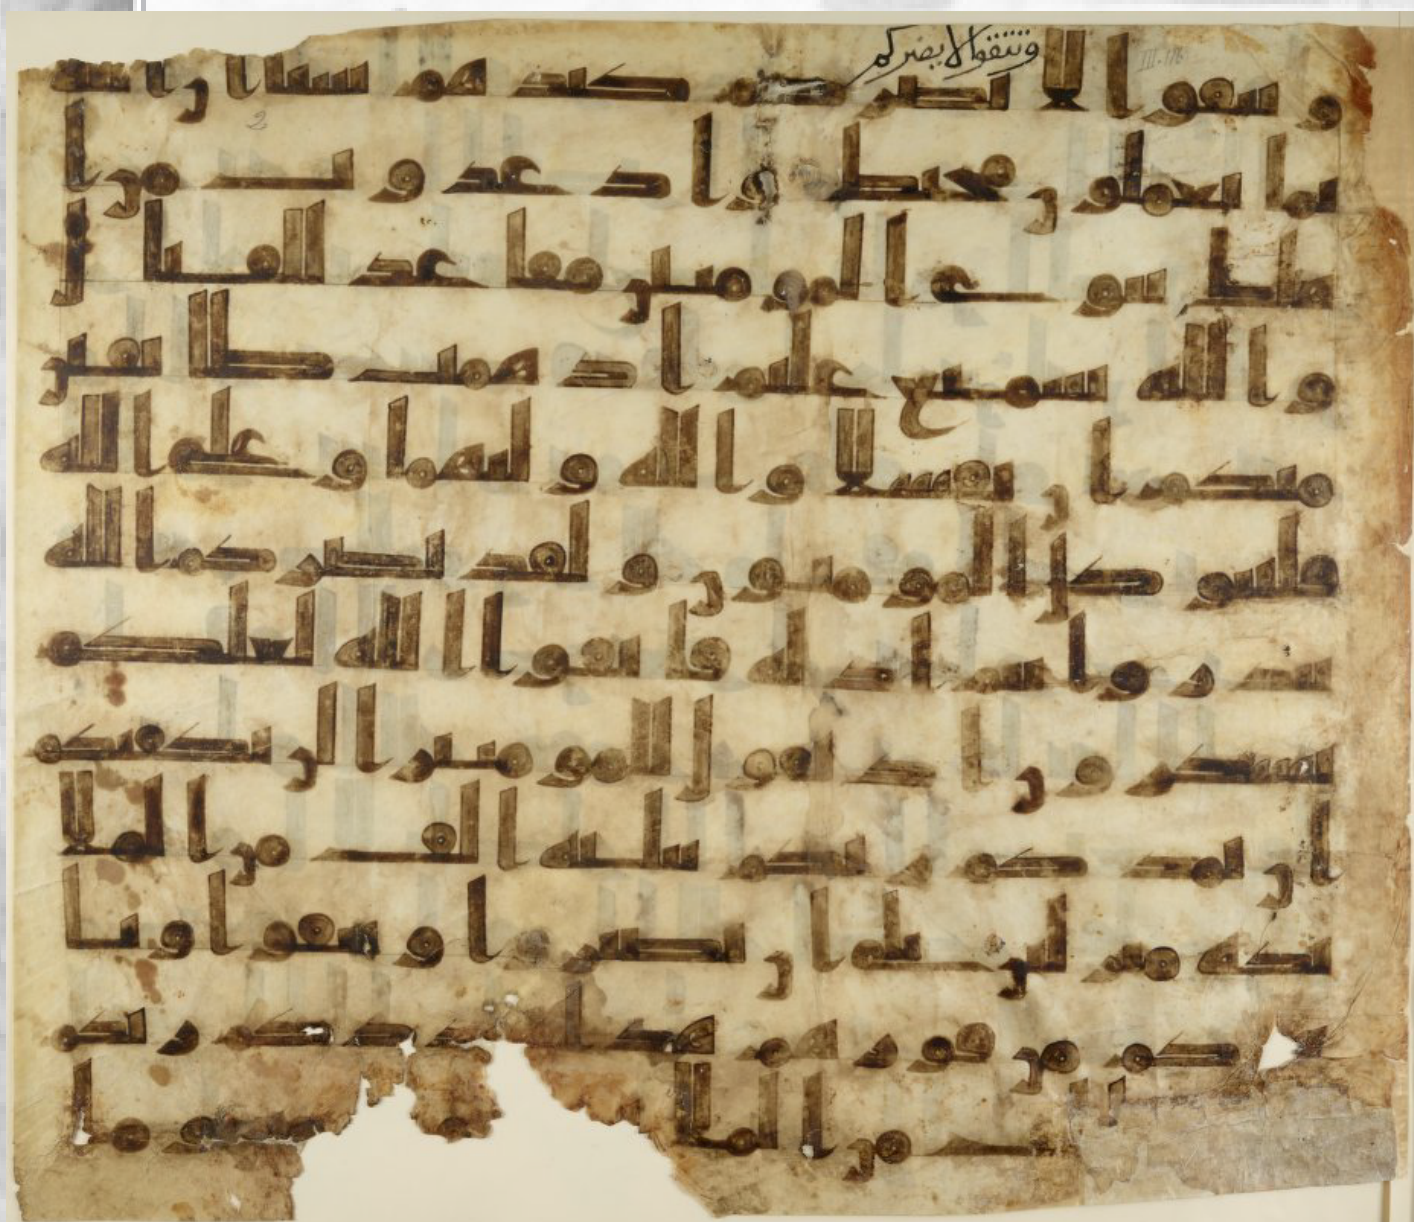 وتتقوا لا يضركم
وتتقوا لا يضركم كيدهم شيا ان الله
بما يعملون محيط واذ غدوت من ا
هلك تبوى المومنين مقعد للقتا ل
والله سميع عليم اذ همت طايفتن
منكم ان تفشلا والله وليهما وعلى الله
فليتوكل المومنون ولقد نصركم الله
ببدر وانتم اذلة فاتقوا الله لعلكم
تشكرون اذ تقول للمومنين الن يكفيكم
ان يمدكم ربكم بثلثة الف من الملا
يكة منزلين بلى ان تصبروا وتتقوا ويا
توكم من فورهم هذا يمددكم ربكم
الف من الملا وما